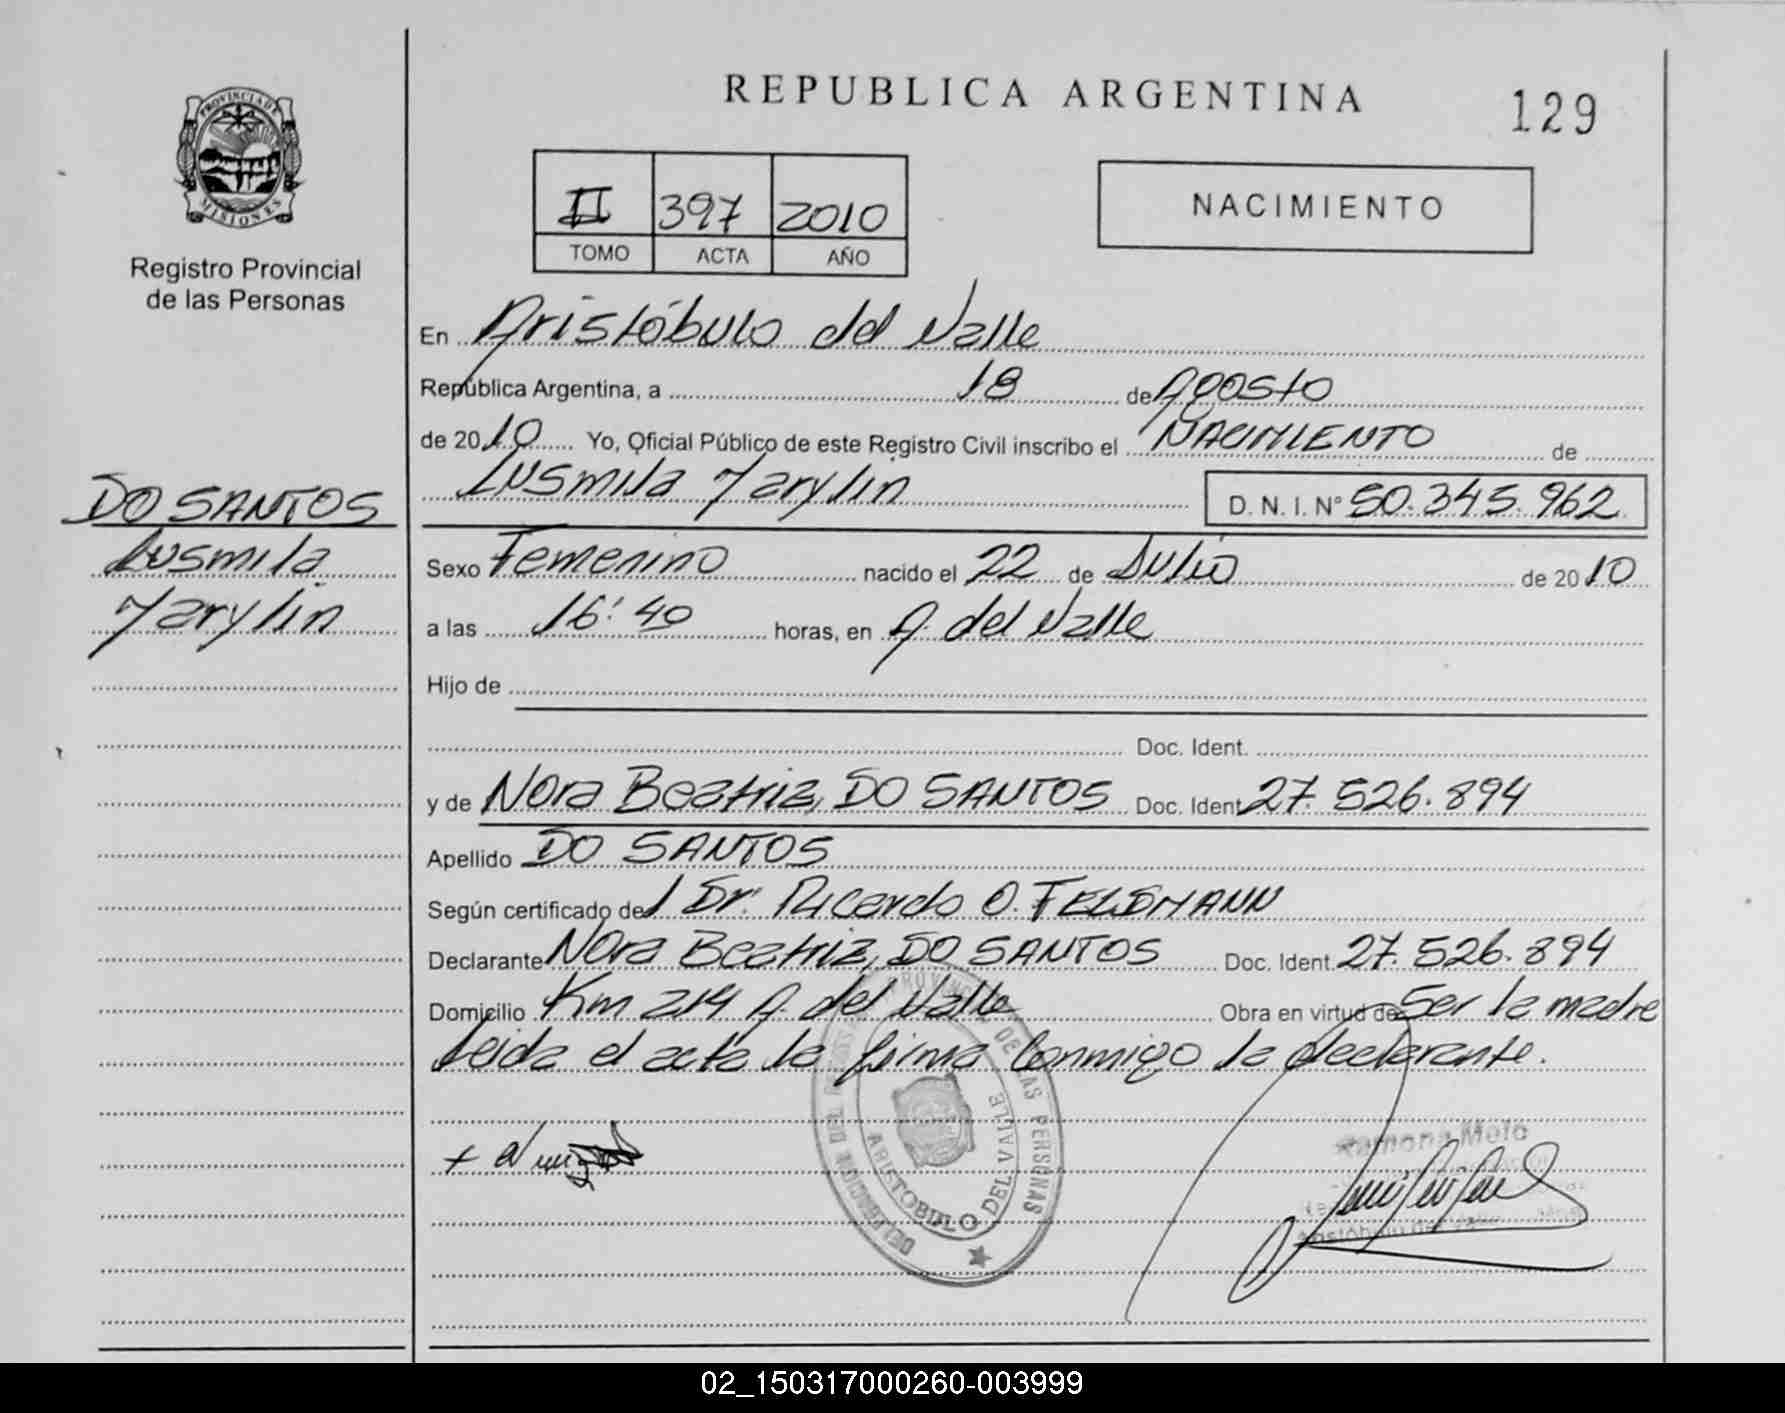 REPUBLICA ARGENTINA
129
PROVINCIA DE
MISIONES
Registro Provincial
de las Personas
II 397 2010
TOMO ACTA AÑO
NACIMIENTO
En Aristóbulo del Valle
República Argentina, a 18 de Agosto
de 2010 Yo, Oficial Público de este Registro Civil inscribo el NACIMIENTO de
Lusmila Yarylin D. N. I. Nº 50.345.962
DO SANTOS
Lusmila
Yarylin
Sexo Femenino nacido el 22 de Julio de 2010
a las 16:40 horas, en A. del Valle
Hijo de
Doc. Ident.
y de Nora Beatriz, DO SANTOS Doc. Ident 27.526.894
Apellido DO SANTOS
Según certificado del Dr. Ricardo O. FELDMANN
Declarante Nora Beatriz, DO SANTOS Doc. Ident. 27.526.894
Domicilio Km 214 A. del Valle Obra en virtud de Ser la madre
Leida el acta la firma Conmigo la declarante.
DE LAS PERSONAS
ARISTOBULO DEL VALLE
Ramona Melo
02_150317000260-003999